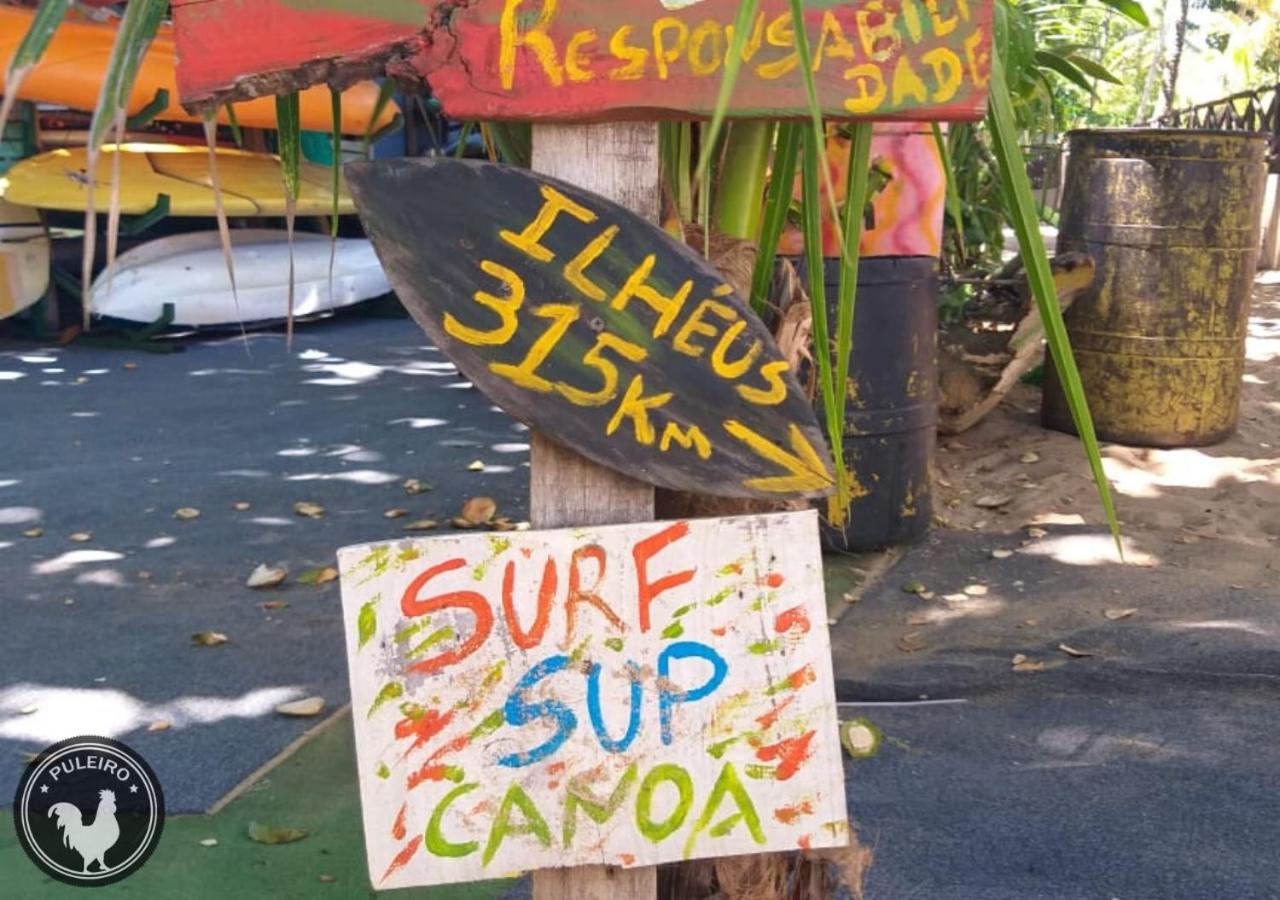 RESPONSABILI
DADE
ILHÉUS
315KM
SURF
SUP
CANOA
PULEIRO